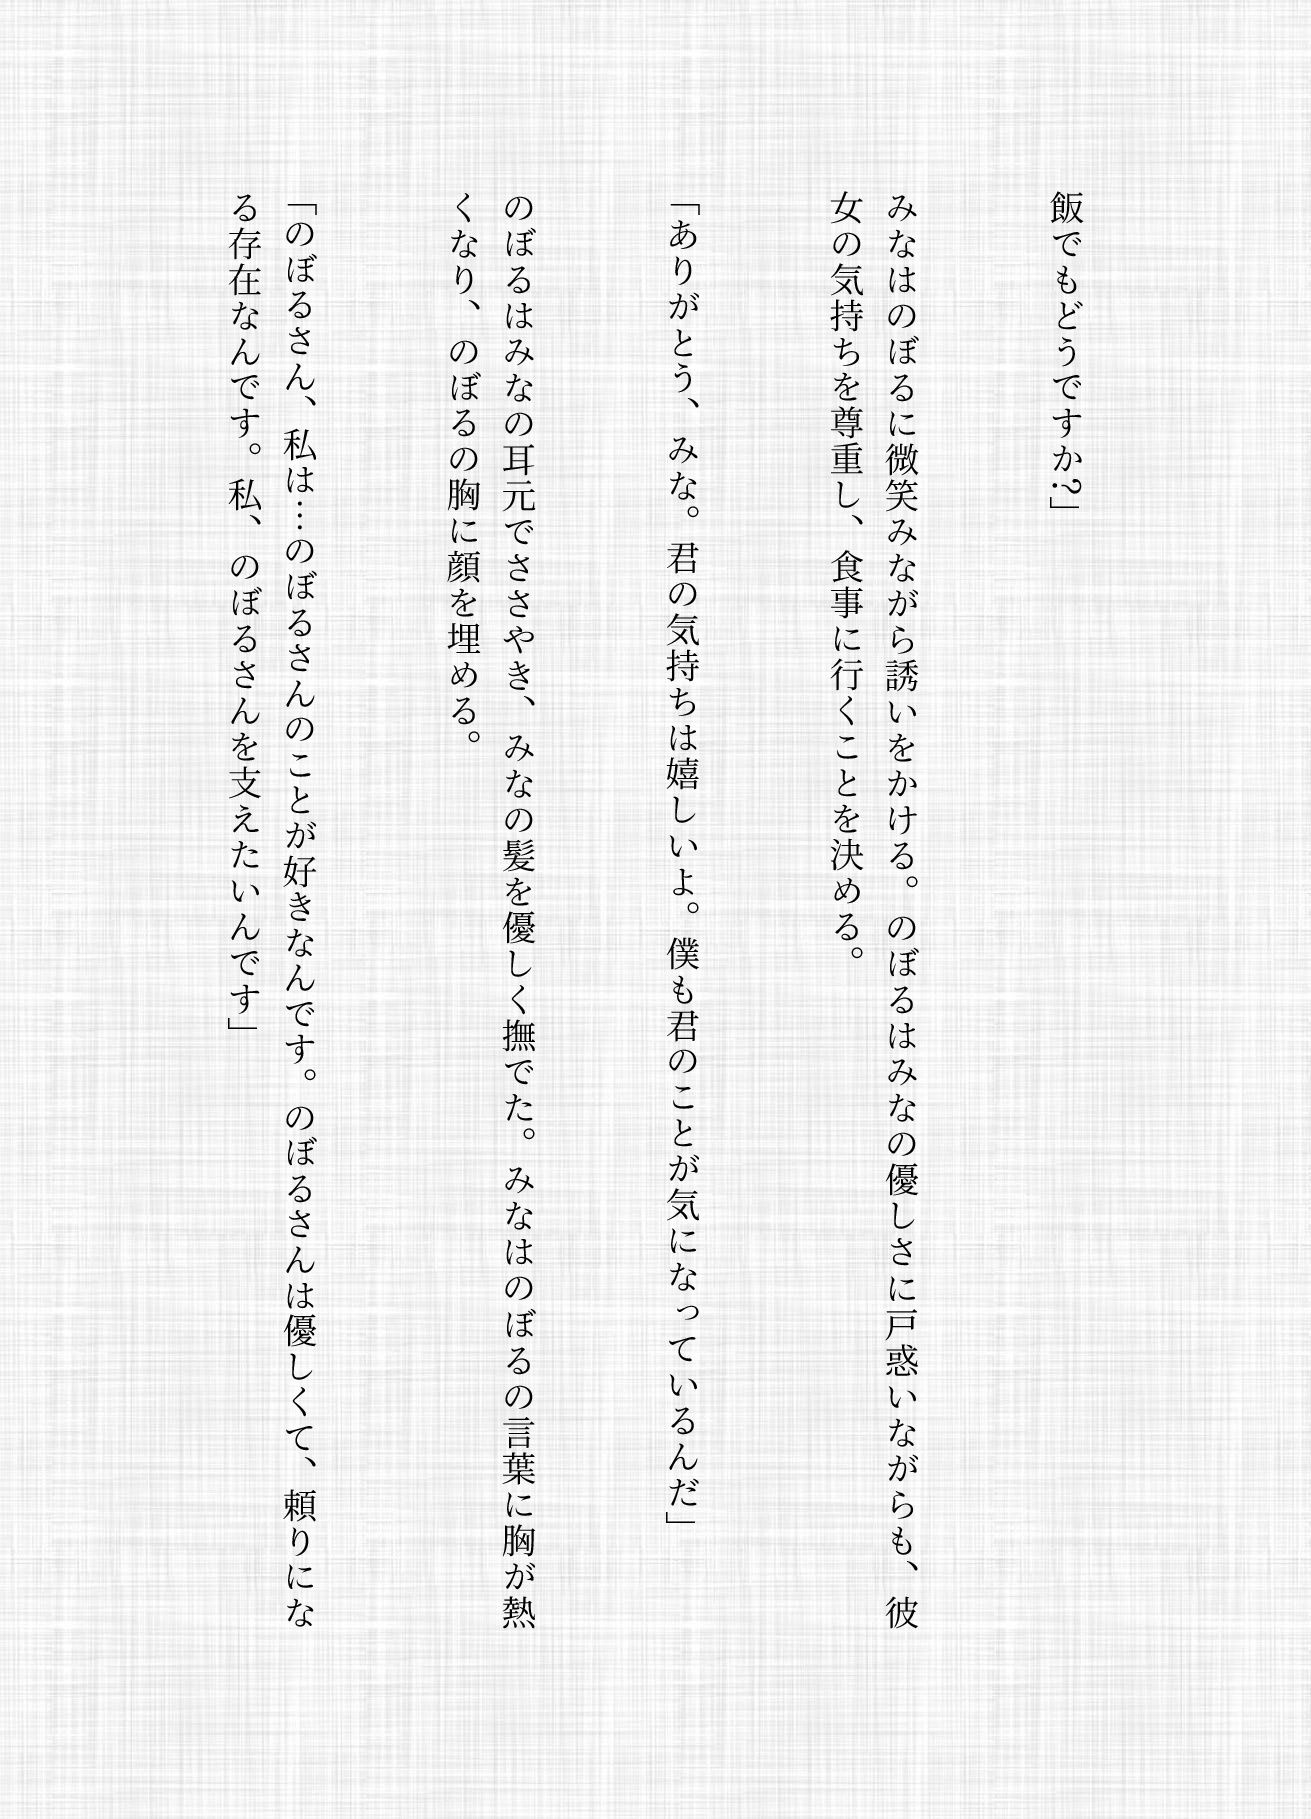 飯でもどうですか?」
みなはのぼるに微笑みながら誘いをかける。のぼるはみなの優しさに戸惑いながらも、彼
女の気持ちを尊重し、食事に行くことを決める。
「ありがとう、みな。君の気持ちは嬉しいよ。僕も君のことが気になっているんだ」
のぼるはみなの耳元でささやき、みなの髪を優しく撫でた。みなはのぼるの言葉に胸が熱
くなり、のぼるの胸に顔を埋める。
「のぼるさん、私は…のぼるさんのことが好きなんです。のぼるさんは優しくて、頼りにな
る存在なんです。私、のぼるさんを支えたいんです」